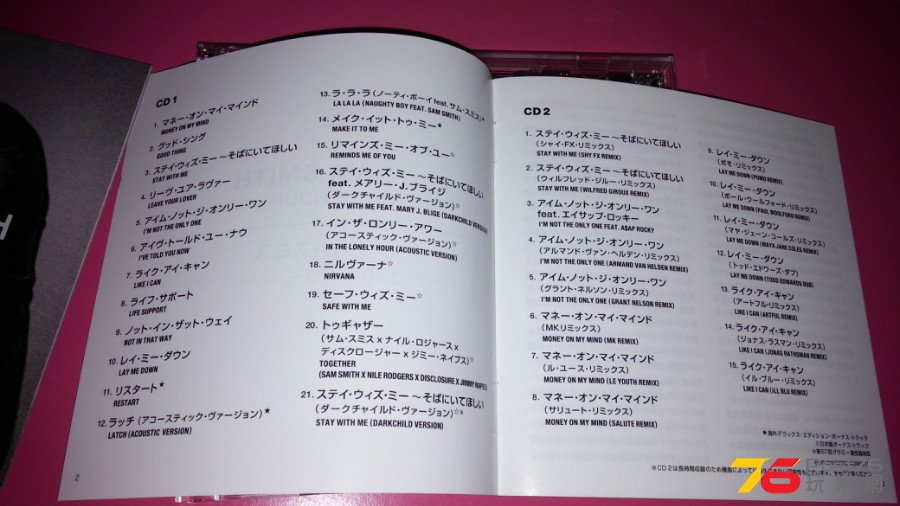 CD 1
1. マネー・オン・マイ・マインド
MONEY ON MY MIND
2. グッド・シング
GOOD THING
3. ステイ・ウィズ・ミー ～そばにいてほしい
STAY WITH ME
4. リーヴ・ユア・ラヴァー
LEAVE YOUR LOVER
5. アイム・ノット・ジ・オンリー・ワン
I'M NOT THE ONLY ONE
6. アイヴ・トールド・ユー・ナウ
I'VE TOLD YOU NOW
7. ライク・アイ・キャン
LIKE I CAN
8. ライフ・サポート
LIFE SUPPORT
9. ノット・イン・ザット・ウェイ
NOT IN THAT WAY
10. レイ・ミー・ダウン
LAY ME DOWN
11. リスタート★
RESTART
12. ラッチ（アコースティック・ヴァージョン）★
LATCH (ACOUSTIC VERSION)
2
13. ラ・ラ・ラ（ノーティ・ボーイ feat. サム・スミス）★
LA LA LA (NAUGHTY BOY FEAT. SAM SMITH)
14. メイク・イット・トゥ・ミー★
MAKE IT TO ME
15. リマインズ・ミー・オブ・ユー☆
REMINDS ME OF YOU
16. ステイ・ウィズ・ミー ～そばにいてほしい
feat. メアリー・J. ブライジ
（ダークチャイルド・ヴァージョン）☆
STAY WITH ME FEAT. MARY J. BLIGE (DARKCHILD VERSION)
17. イン・ザ・ロンリー・アワー
（アコースティック・ヴァージョン）☆
IN THE LONELY HOUR (ACOUSTIC VERSION)
18. ニルヴァーナ☆
NIRVANA
19. セーフ・ウィズ・ミー☆
SAFE WITH ME
20. トゥギャザー
（サム・スミス x ナイル・ロジャース x
ディスクロージャー x ジミー・ネイプス）☆
TOGETHER
(SAM SMITH X NILE RODGERS X DISCLOSURE X JIMMY NAPES)
21. ステイ・ウィズ・ミー ～そばにいてほしい
（ダークチャイルド・ヴァージョン）☆※
STAY WITH ME (DARKCHILD VERSION)
CD 2
1. ステイ・ウィズ・ミー ～そばにいてほしい
（シャイ・FX・リミックス）
STAY WITH ME (SHY FX REMIX)
2. ステイ・ウィズ・ミー ～そばにいてほしい
（ウィルフレッド・ジルー・リミックス）
STAY WITH ME (WILFRED GIROUX REMIX)
3. アイム・ノット・ジ・オンリー・ワン
feat. エイサップ・ロッキー
I'M NOT THE ONLY ONE FEAT. A$AP ROCKY
4. アイム・ノット・ジ・オンリー・ワン
（アルマンド・ヴァン・ヘルデン・リミックス）
I'M NOT THE ONLY ONE (ARMAND VAN HELDEN REMIX)
5. アイム・ノット・ジ・オンリー・ワン
（グラント・ネルソン・リミックス）
I'M NOT THE ONLY ONE (GRANT NELSON REMIX)
6. マネー・オン・マイ・マインド
（MKリミックス）
MONEY ON MY MIND (MK REMIX)
7. マネー・オン・マイ・マインド
（ル・ユース・リミックス）
MONEY ON MY MIND (LE YOUTH REMIX)
8. マネー・オン・マイ・マインド
（サリュート・リミックス）
MONEY ON MY MIND (SALUTE REMIX)
9. レイ・ミー・ダウン
（ポモ・リミックス）
LAY ME DOWN (POMO REMIX)
10. レイ・ミー・ダウン
（ポール・ウールフォード・リミックス）
LAY ME DOWN (PAUL WOOLFORD REMIX)
11. レイ・ミー・ダウン
（マヤ・ジェーン・コールズ・リミックス）
LAY ME DOWN (MAYA JANE COLES REMIX)
12. レイ・ミー・ダウン
（トッド・エドワーズ・ダブ）
LAY ME DOWN (TODD EDWARDS DUB)
13. ライク・アイ・キャン
（アートフル・リミックス）
LIKE I CAN (ARTFUL REMIX)
14. ライク・アイ・キャン
（ジョナス・ラスマン・リミックス）
LIKE I CAN (JONAS RATHSMAN REMIX)
15. ライク・アイ・キャン
（イル・ブルー・リミックス）
LIKE I CAN (ILL BLU REMIX)
★海外デラックス・エディション・ボーナス・トラック
☆日本盤ボーナス・トラック
※第57回グラミー賞受賞楽曲
※CD 2は長時間収録のため機器によって
76
玩樂網